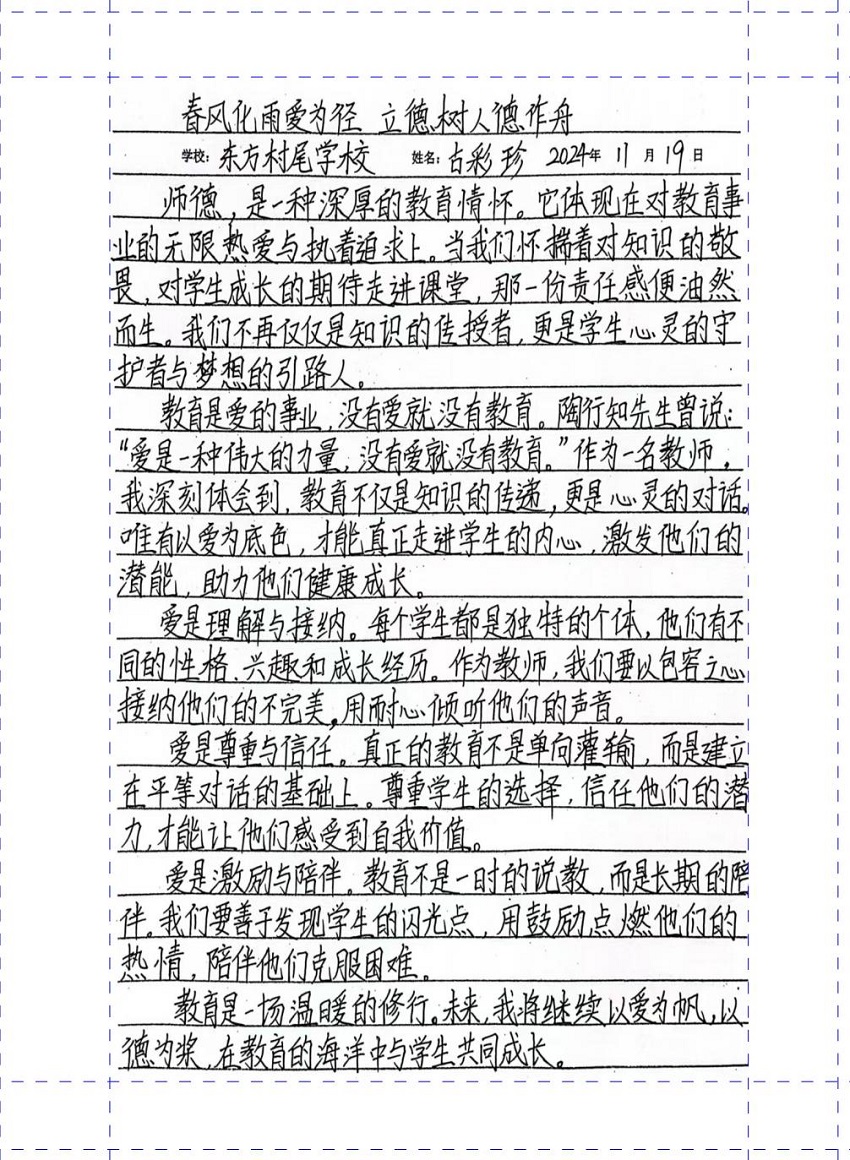 春风化雨爱为径 立德树人德作舟
学校：东方村尾学校 姓名：古彩珍 2024年11月19日
师德，是一种深厚的教育情怀。它体现在对教育事
业的无限热爱与执着追求上。当我们怀揣着对知识的敬
畏，对学生成长的期待走进课堂，那一份责任感便油然
而生。我们不再仅仅是知识的传授者，更是学生心灵的守
护者与梦想的引路人。
教育是爱的事业，没有爱就没有教育。陶行知先生曾说：
“爱是一种伟大的力量，没有爱就没有教育。”作为一名教师，
我深刻体会到，教育不仅是知识的传递，更是心灵的对话。
唯有以爱为底色，才能真正走进学生的内心，激发他们的
潜能，助力他们健康成长。
爱是理解与接纳。每个学生都是独特的个体，他们有不
同的性格、兴趣和成长经历。作为教师，我们要以包容之心
接纳他们的不完美，用耐心倾听他们的声音。
爱是尊重与信任。真正的教育不是单向灌输，而是建立
在平等对话的基础上。尊重学生的选择，信任他们的潜
力，才能让他们感受到自我价值。
爱是激励与陪伴。教育不是一时的说教，而是长期的陪
伴。我们要善于发现学生的闪光点，用鼓励点燃他们的
热情，陪伴他们克服困难。
教育是一场温暖的修行。未来，我将继续以爱为帆，以
德为桨，在教育的海洋中与学生共同成长。